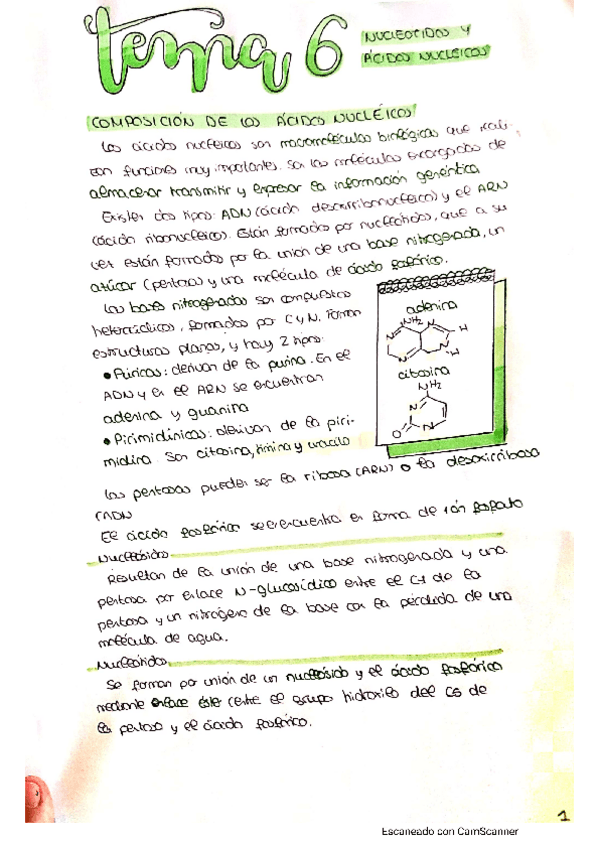 tema 6
NUCLEOTIDOS Y
ÁCIDOS NUCLEICOS
COMPOSICIÓN DE LOS ÁCIDOS NUCLÉICOS
Los ácidos nucleicos son macromoléculas biológicas que reali-
zan funciones muy importantes. Son las moléculas encargadas de
almacenar transmitir y expresar la información genéntica
Existen dos tipos: ADN (ácido desoxirribonucleico) y el ARN
(ácido ribonucleico). Están formados por nucleótidos, que a su
vez están formados por la unión de una base nitrogenada, un
azúcar (pentosa) y una molécula de ácido fosfórico.
Las bases nitrogenadas son compuestos
heterocíclicos, formados por C y N. Forman
estructuras planas, y hay 2 tipos:
• Púricas: derivan de la purina. En el
ADN y en el ARN se encuentran
adenina y guanina
• Pirimidínicas: derivan de la piri-
midina. Son citosina, timina y uracilo
adenina
NH2
N
N
N
N
H
H
citosina
NH2
N
O
N
Las pentosas pueden ser la ribosa (ARN) o la desoxirribosa
(ADN
El ácido fosfórico se encuentra en forma de ión fosfato
Nucleósidos
Resultan de la unión de una base nitrogenada y una
pentosa por enlace N-glucosídico entre el C1 de la
pentosa y un nitrógeno de la base con la pérdida de una
molécula de agua.
Nucleótidos
Se forman por unión de un nucleósido y el ácido fosfórico
mediante enlace éster (entre el grupo hidroxilo del C5 de
la pentosa y el ácido fosfórico.
1
Escaneado con CamScanner